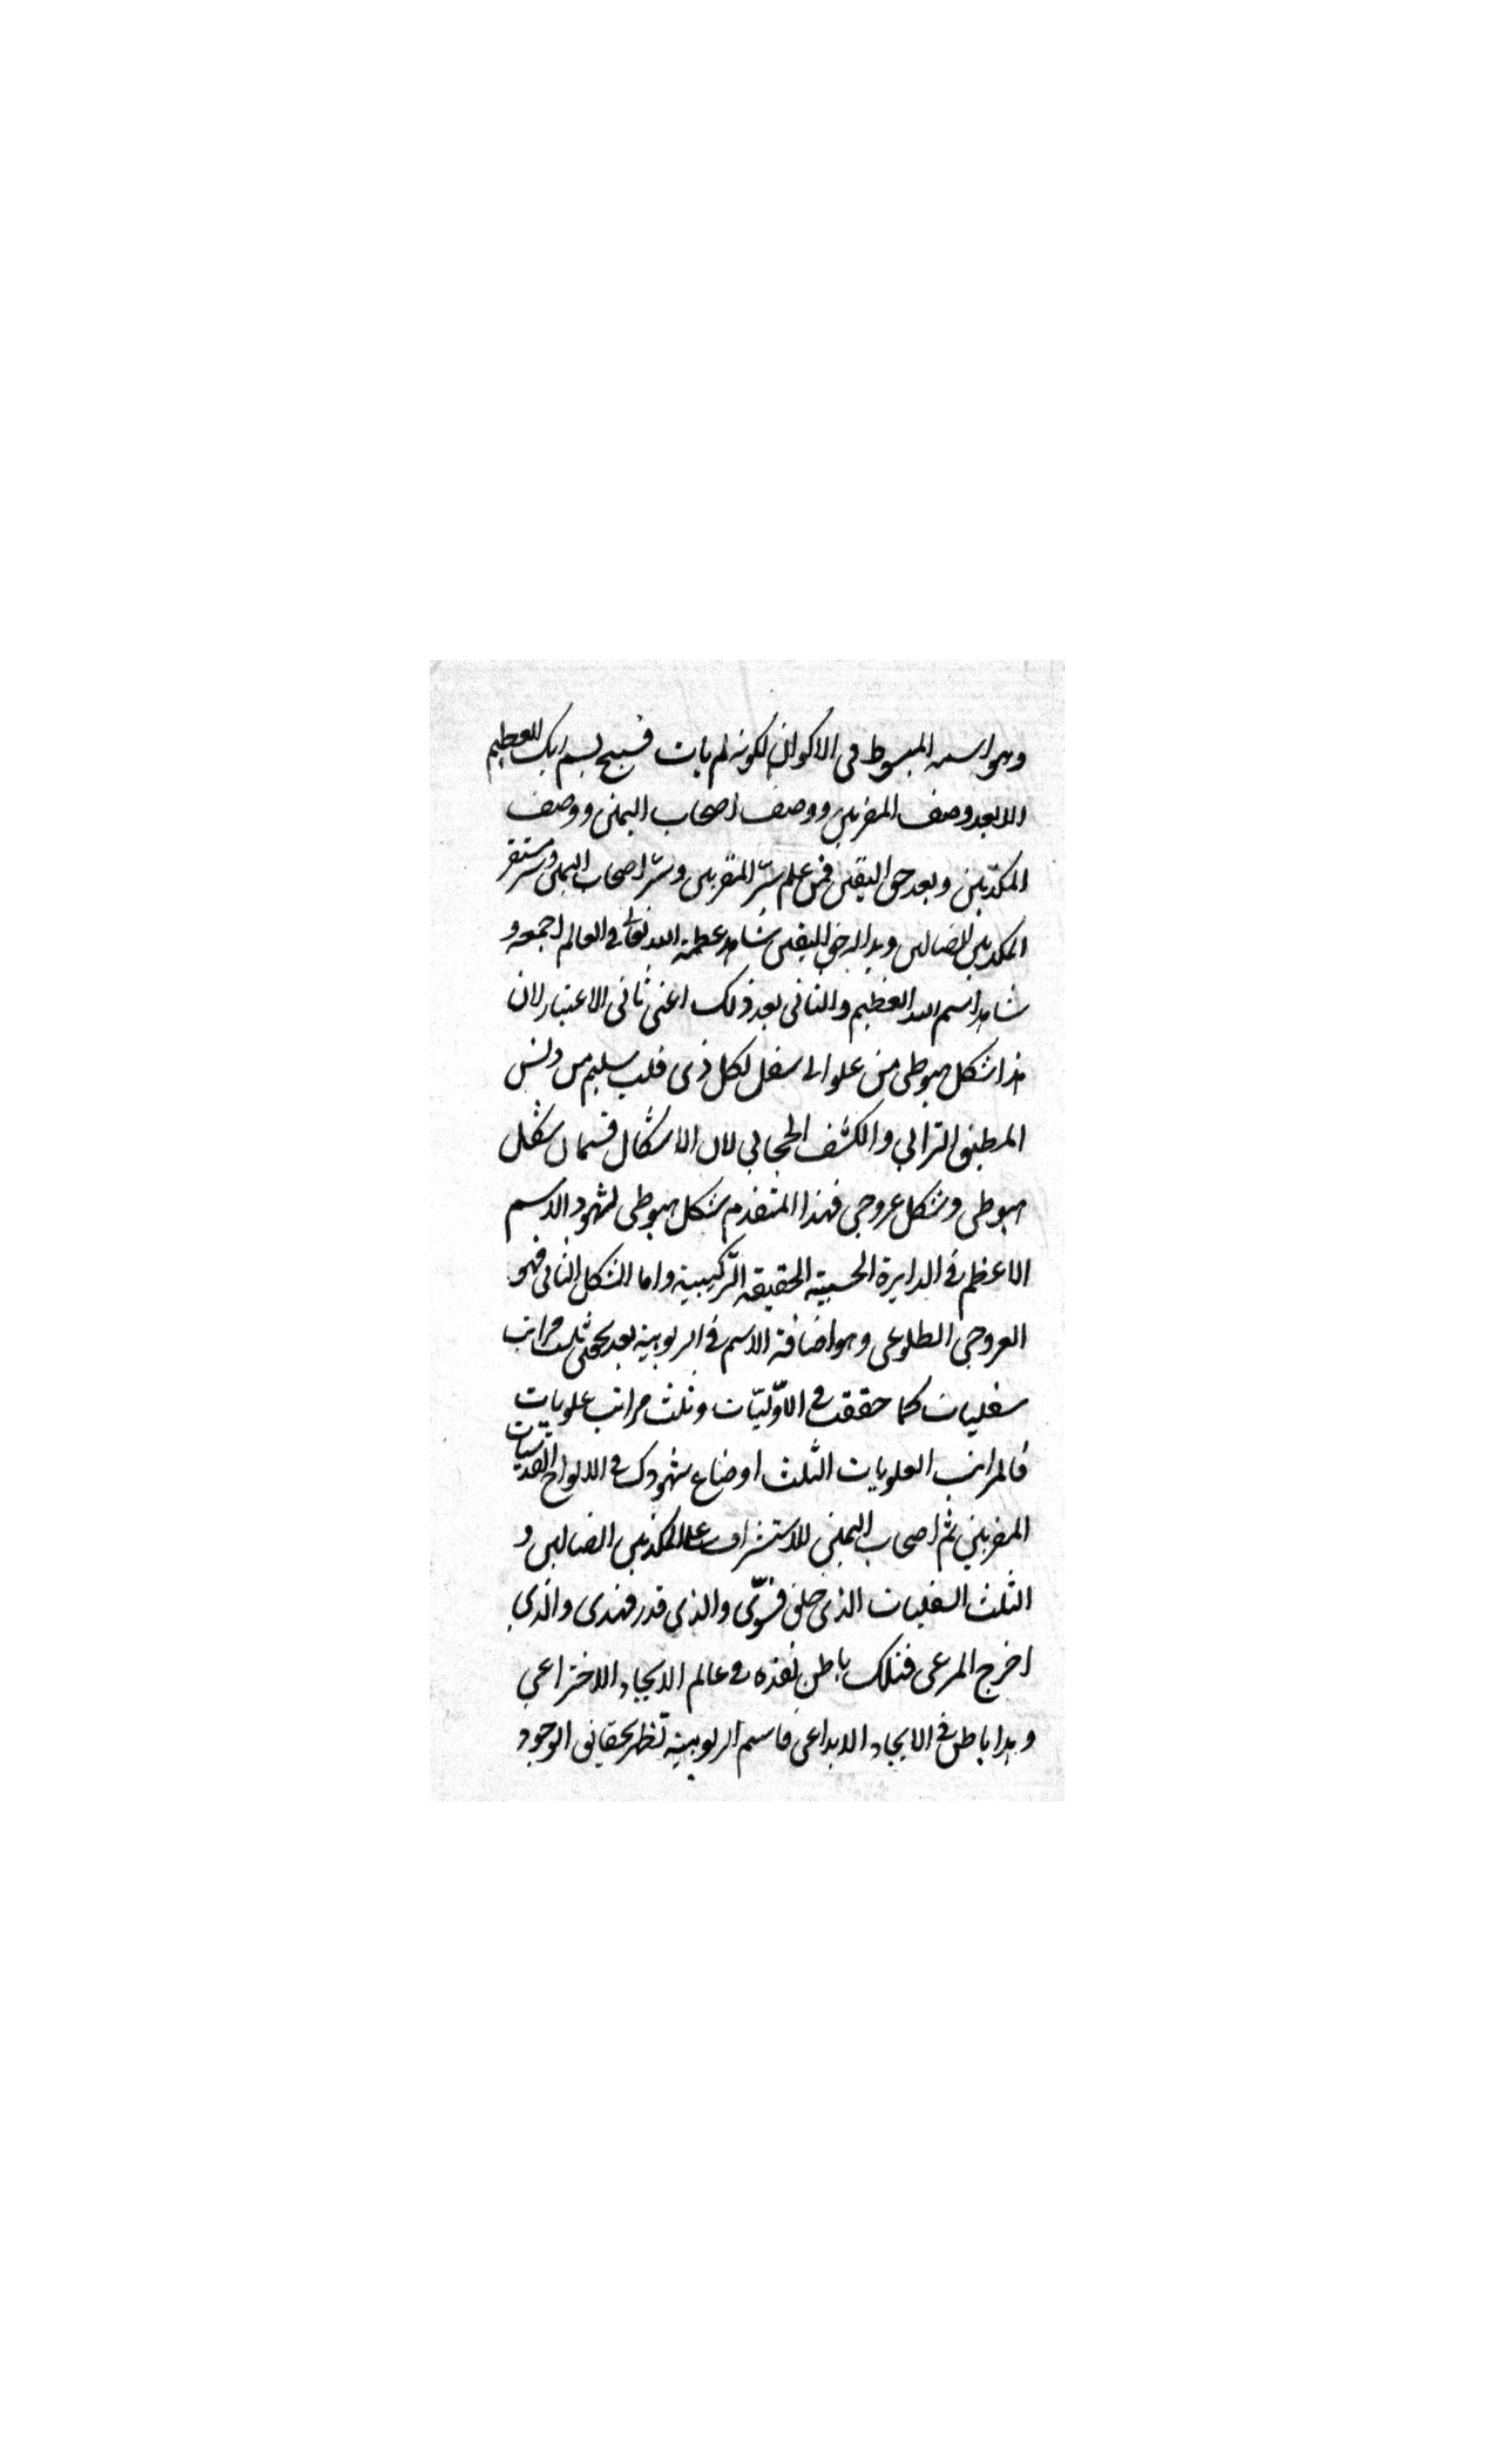 وهو اسمه المبسوط فى الاكوان لكونه لم يات فسبح باسم ربك العظيم
الا بعد وصف المقربين ووصف اصحاب اليمين ووصف
المكذبين وبعد حق اليقين فمن علم سرّ المقربين وسرّ اصحاب اليمين وسر ستقر
المكذبين الضالين وبدا له حق اليقين شاهد عظمة الله تعالى فى العالم اجمعه و
شاهد اسم الله العظيم والثانى بعد ذلك اعنى ثانى الاعتبار لان
هذا شكل هبوطى من علو الى سفل لكل ذى قلب سليم من دنس
الترابى والكشف الحجابى لان الاشكال قسمان شكل
هبوطى وشكل عروجى فهذا المتقدم شكل هبوطى لشهود الاسم
الاعظم فى الدايرة الحسية الحقيقة التركيبية واما الشكل الثانى فهو
العروجى الطلوعى وهو اضافة الاسم فى الربوبية بعد ثلث مراتب
سفليات كما حققت فى الاوّليّات وثلث مراتب علويات
فالمراتب العلويات الثلث اوضاع شهودك فى الالواح القدسيات
المقربين ثم اصحاب اليمين للاستشراف على المكذبين الضالين و
الثلث السفليات الذى خلق فسوّى والذى قدر فهدى والذى
اخرج المرعى فتلك باطن نفذه فى عالم الايجاد الاختراعى
وهذا باطن فى الايجاد الابداعى فاسم الربوبية تظهر بحقايق الوجود